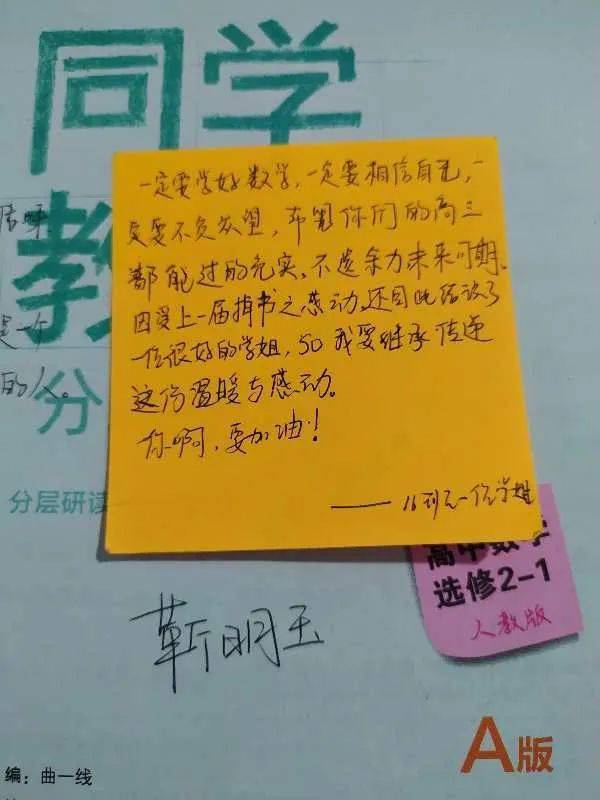 同学
教
分
分层研读
一定要学好数学,一定要相信自己,一
定要不负众望,希望你们的高三
都能过的充实,不遗余力未来可期。
因受上一届掉书之感动,还因此结识了
一位很好的学姐,so我要继承传递
这份温暖与感动。
你啊,要加油!
——16列 一位学姐
的人。
高中数学
选修2-1
人教版
靳明玉
A版
编:曲一线